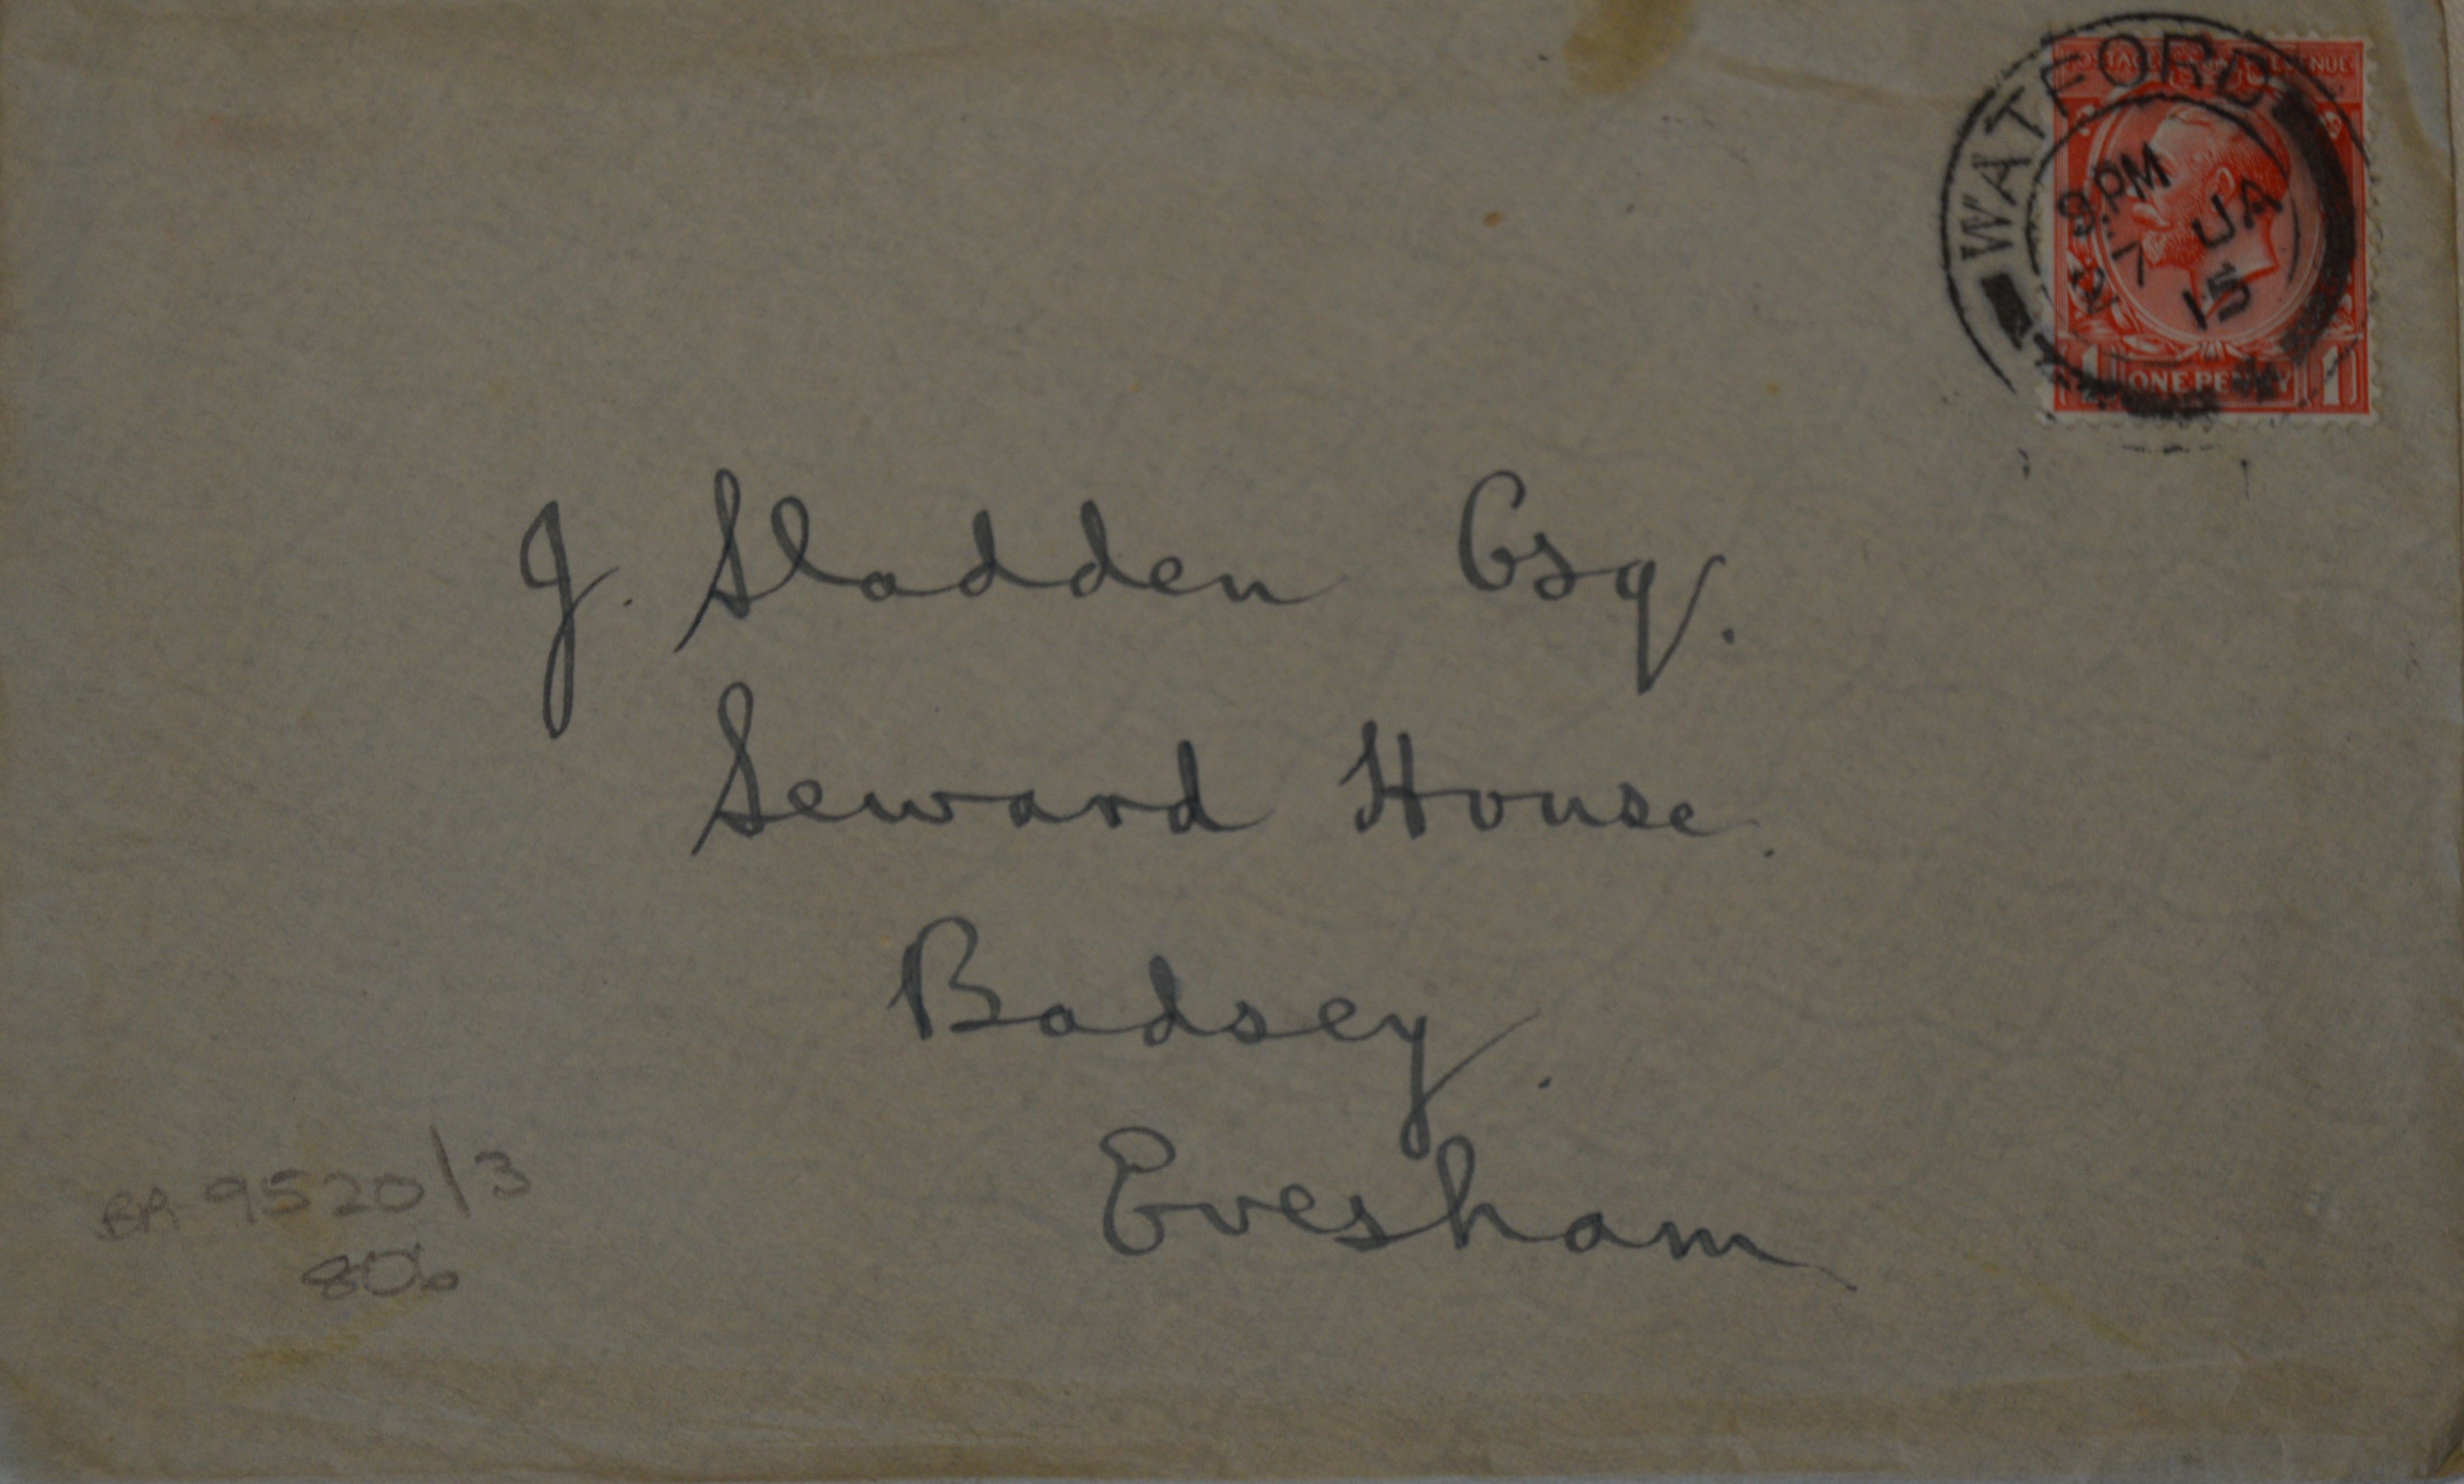 WATFORD
9.PM
27 JA
15
POSTAGE REVENUE
1 ONE PENNY 1
J. Sladden Esq.
Seward House.
Badsey.
Evesham
BA 9520/3
806